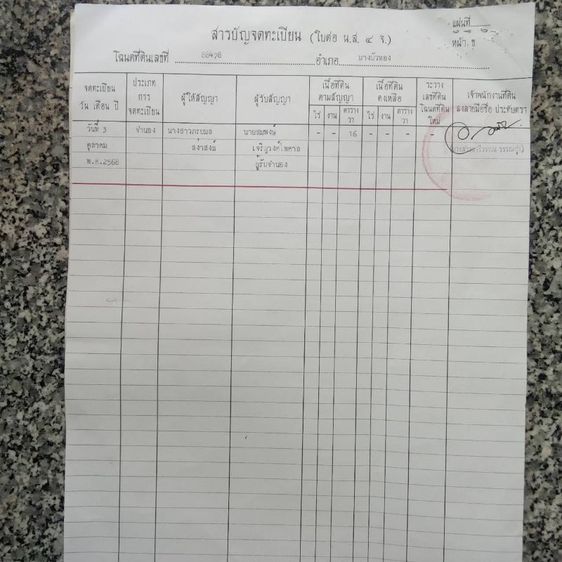 สารบัญจดทะเบียน (ใบต่อ น.ส. ๔ จ.)
แผ่นที่
หน้า ข
โฉนดที่ดินเลขที่ อำเภอ บางบัวทอง
จดทะเบียน วัน เดือน ปี
ประเภท การ จดทะเบียน
ผู้ให้สัญญา
ผู้รับสัญญา
เนื้อที่ดิน ตามสัญญา
ไร่ งาน ตาราง วา
เนื้อที่ดิน คงเหลือ
ไร่ งาน ตาราง วา
ระวาง เลขที่ดิน โฉนดที่ดิน ใหม่
เจ้าพนักงานที่ดิน ลงลายมือชื่อ ประทับตรา
วันที่ 3 จำนอง นางสาวภรมล นายสมพงษ์ - - 16 - - - -
ตุลาคม ส่งสงษ์ เจริญวงศ์ไพศาล
พ.ศ.2568 ผู้รับจำนอง